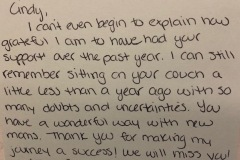 Cindy,
I can't even begin to explain how
grateful I am to have had your
support over the past year. I can still
remember sitting on your couch a
little less than a year ago with so
many doubts and uncertainties. You
have a wonderful way with new
moms. Thank you for making my
journey a success! We will miss you!